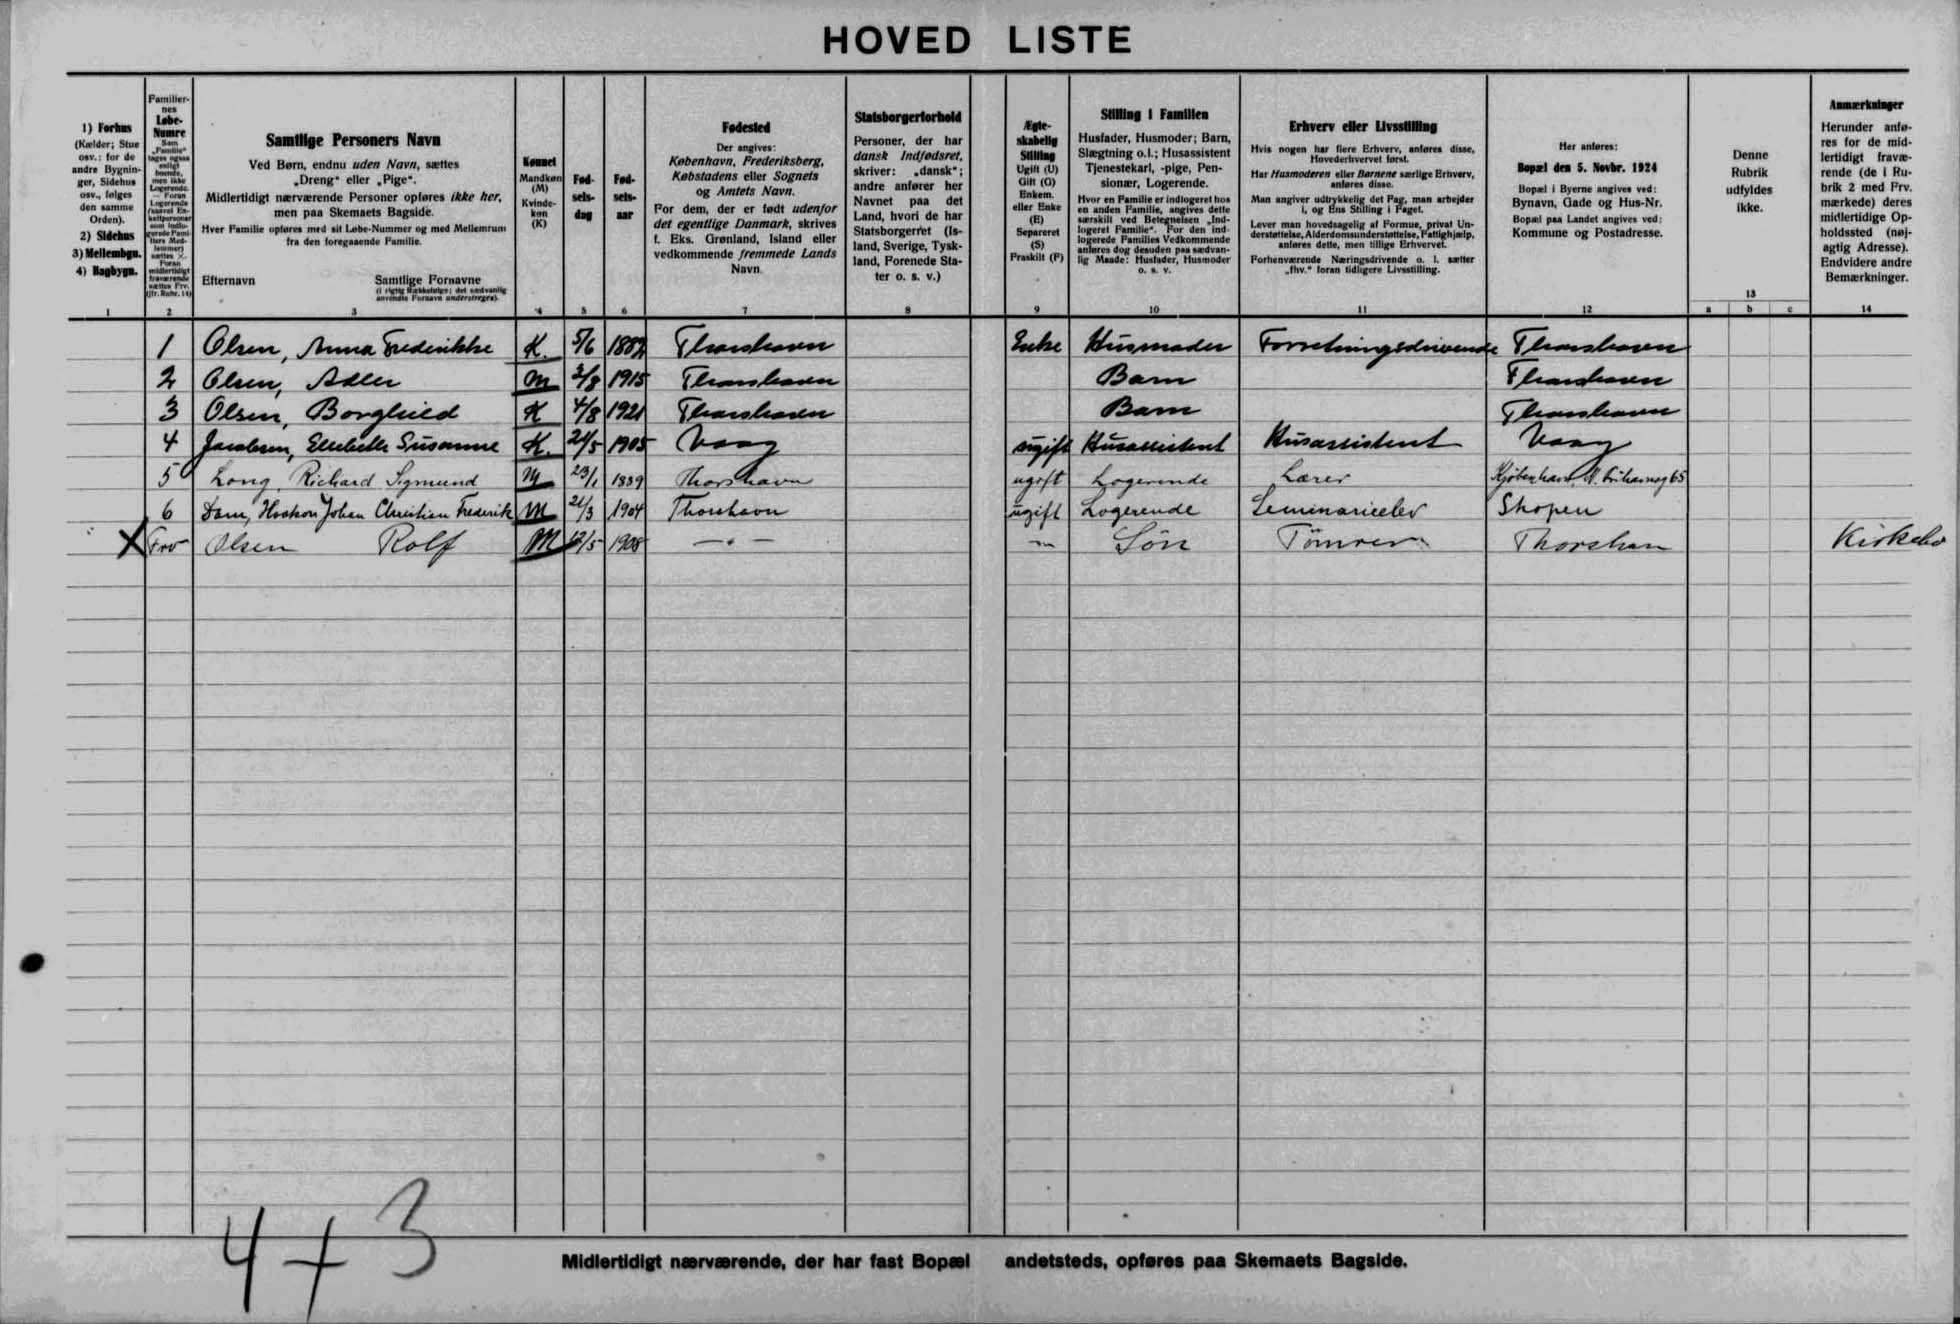 HOVED LISTE
1) Forhus
(Kælder; Stue
osv.: for de
andre Bygnin-
ger, Sidehus
osv., følges
den samme
Orden).
2) Sidehus
3) Mellembgn.
4) Bagbygn.
1
Familier-
nes
Løbe-
Numre
Som
„Familie“
tages ogsaa
enligt
boende,
men ikke
Logerende.
— Foran
Logerende
(saavel En-
keltpersoner
som indlo-
gerede Fami-
liers Med-
lemmer)
sættes ×.
Foran
midlertidigt
fraværende
sættes Frv.
(jfr. Rubr. 14)
2
Samtlige Personers Navn
Ved Børn, endnu uden Navn, sættes
„Dreng“ eller „Pige“.
Midlertidigt nærværende Personer opføres ikke her,
men paa Skemaets Bagside.
Hver Familie opføres med sit Løbe-Nummer og med Mellemrum
fra den foregaaende Familie.
Efternavn Samtlige Fornavne
(i rigtig Rækkefølge; det sædvanlig
anvendte Fornavn understreges).
3
Kønnet
Mandkøn
(M)
Kvinde-
køn
(K)
4
Fød-
sels-
dag
5
Fød-
sels-
aar
6
Fødested
Der angives:
København, Frederiksberg,
Købstadens eller Sognets
og Amtets Navn.
For dem, der er født udenfor
det egentlige Danmark, skrives
f. Eks. Grønland, Island eller
vedkommende fremmede Lands
Navn.
7
Statsborgerforhold
Personer, der har
dansk Indfødsret,
skriver: „dansk“;
andre anfører her
Navnet paa det
Land, hvori de har
Statsborgerret (Is-
land, Sverige, Tysk-
land, Forenede Sta-
ter o. s. v.)
8
Ægte-
skabelig
Stilling
Ugift (U)
Gift (G)
Enkem.
eller Enke
(E)
Separeret
(S)
Fraskilt (F)
9
Stilling i Familien
Husfader, Husmoder; Barn,
Slægtning o.l.; Husassistent
Tjenestekarl, -pige, Pen-
sionær, Logerende.
Hvor en Familie er indlogeret hos
en anden Familie, angives dette
særskilt ved Betegnelsen „Ind-
logeret Familie“. For den ind-
logerede Families Vedkommende
anføres dog desuden paa sædvan-
lig Maade: Husfader, Husmoder
o. s. v.
10
Erhverv eller Livsstilling
Hvis nogen har flere Erhverv, anføres disse,
Hovederhvervet først.
Har Husmoderen eller Børnene særlige Erhverv,
anføres disse.
Man angiver udtrykkelig det Fag, man arbejder
i, og Ens Stilling i Faget.
Lever man hovedsagelig af Formue, privat Un-
derstøttelse, Alderdomsunderstøttelse, Fattighjælp,
anføres dette, men tillige Erhvervet.
Forhenværende Næringsdrivende o. l. sætter
„fhv.“ foran tidligere Livsstilling.
11
Her anføres:
Bopæl den 5. Novbr. 1924
Bopæl i Byerne angives ved:
Bynavn, Gade og Hus-Nr.
Bopæl paa Landet angives ved:
Kommune og Postadresse.
12
Denne
Rubrik
udfyldes
ikke.
13
a b c
Anmærkninger
Herunder anfø-
res for de mid-
lertidigt fravæ-
rende (de i Ru-
brik 2 med Frv.
mærkede) deres
midlertidige Op-
holdssted (nøj-
agtig Adresse).
Endvidere andre
Bemærkninger.
14
1 Olsen, Anna Frederikke K. 5/6 1882 Thorshavn Enke Husmoder Forretningsdrivende Thorshavn
2 Olsen, Adler M 2/8 1915 Thorshavn Barn Thorshavn
3 Olsen, Borghild K 4/8 1921 Thorshavn Barn Thorshavn
4 Jacobsen, Susanne K. 24/5 1905 Vaag ugift Husassistent Husassistent Vaag
5 Long, Richard Sigmund M 23/1 1889 Thorshavn ugift Logerende Lærer Kjøbenhavn N. 65
6 Dam, Haakon Johan Christian Frederik M 21/3 1904 Thorshavn ugift Logerende Seminarieelev Skopen
X Frv Olsen Rolf M 12/5 1908 — " — Søn Tømrer Thorshavn Kirkebø
4 + 3
Midlertidigt nærværende, der har fast Bopæl andetsteds, opføres paa Skemaets Bagside.